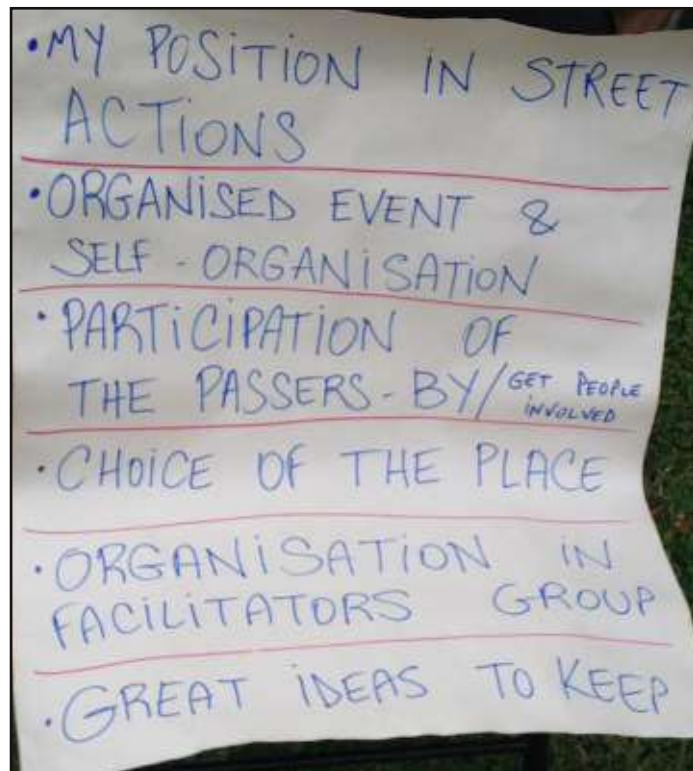 •MY POSITION IN STREET
ACTIONS
•ORGANISED EVENT &
SELF-ORGANISATION
•PARTICIPATION OF
THE PASSERS-BY/GET PEOPLE
INVOLVED
•CHOICE OF THE PLACE
•ORGANISATION IN
FACILITATORS GROUP
•GREAT IDEAS TO KEEP